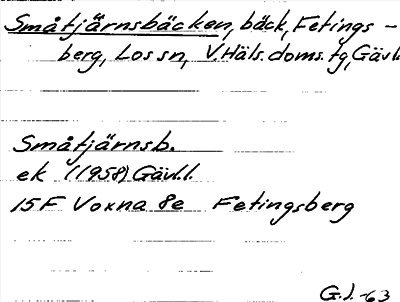 Småtjärnsbäcken, bäck, Fetings-
berg, Los sn, V.Häls.doms.tg, Gävl.
Småtjärnsb.
ek (1958) Gävl.l.
15F Voxna 8e Fetingsberg
G.J. -63